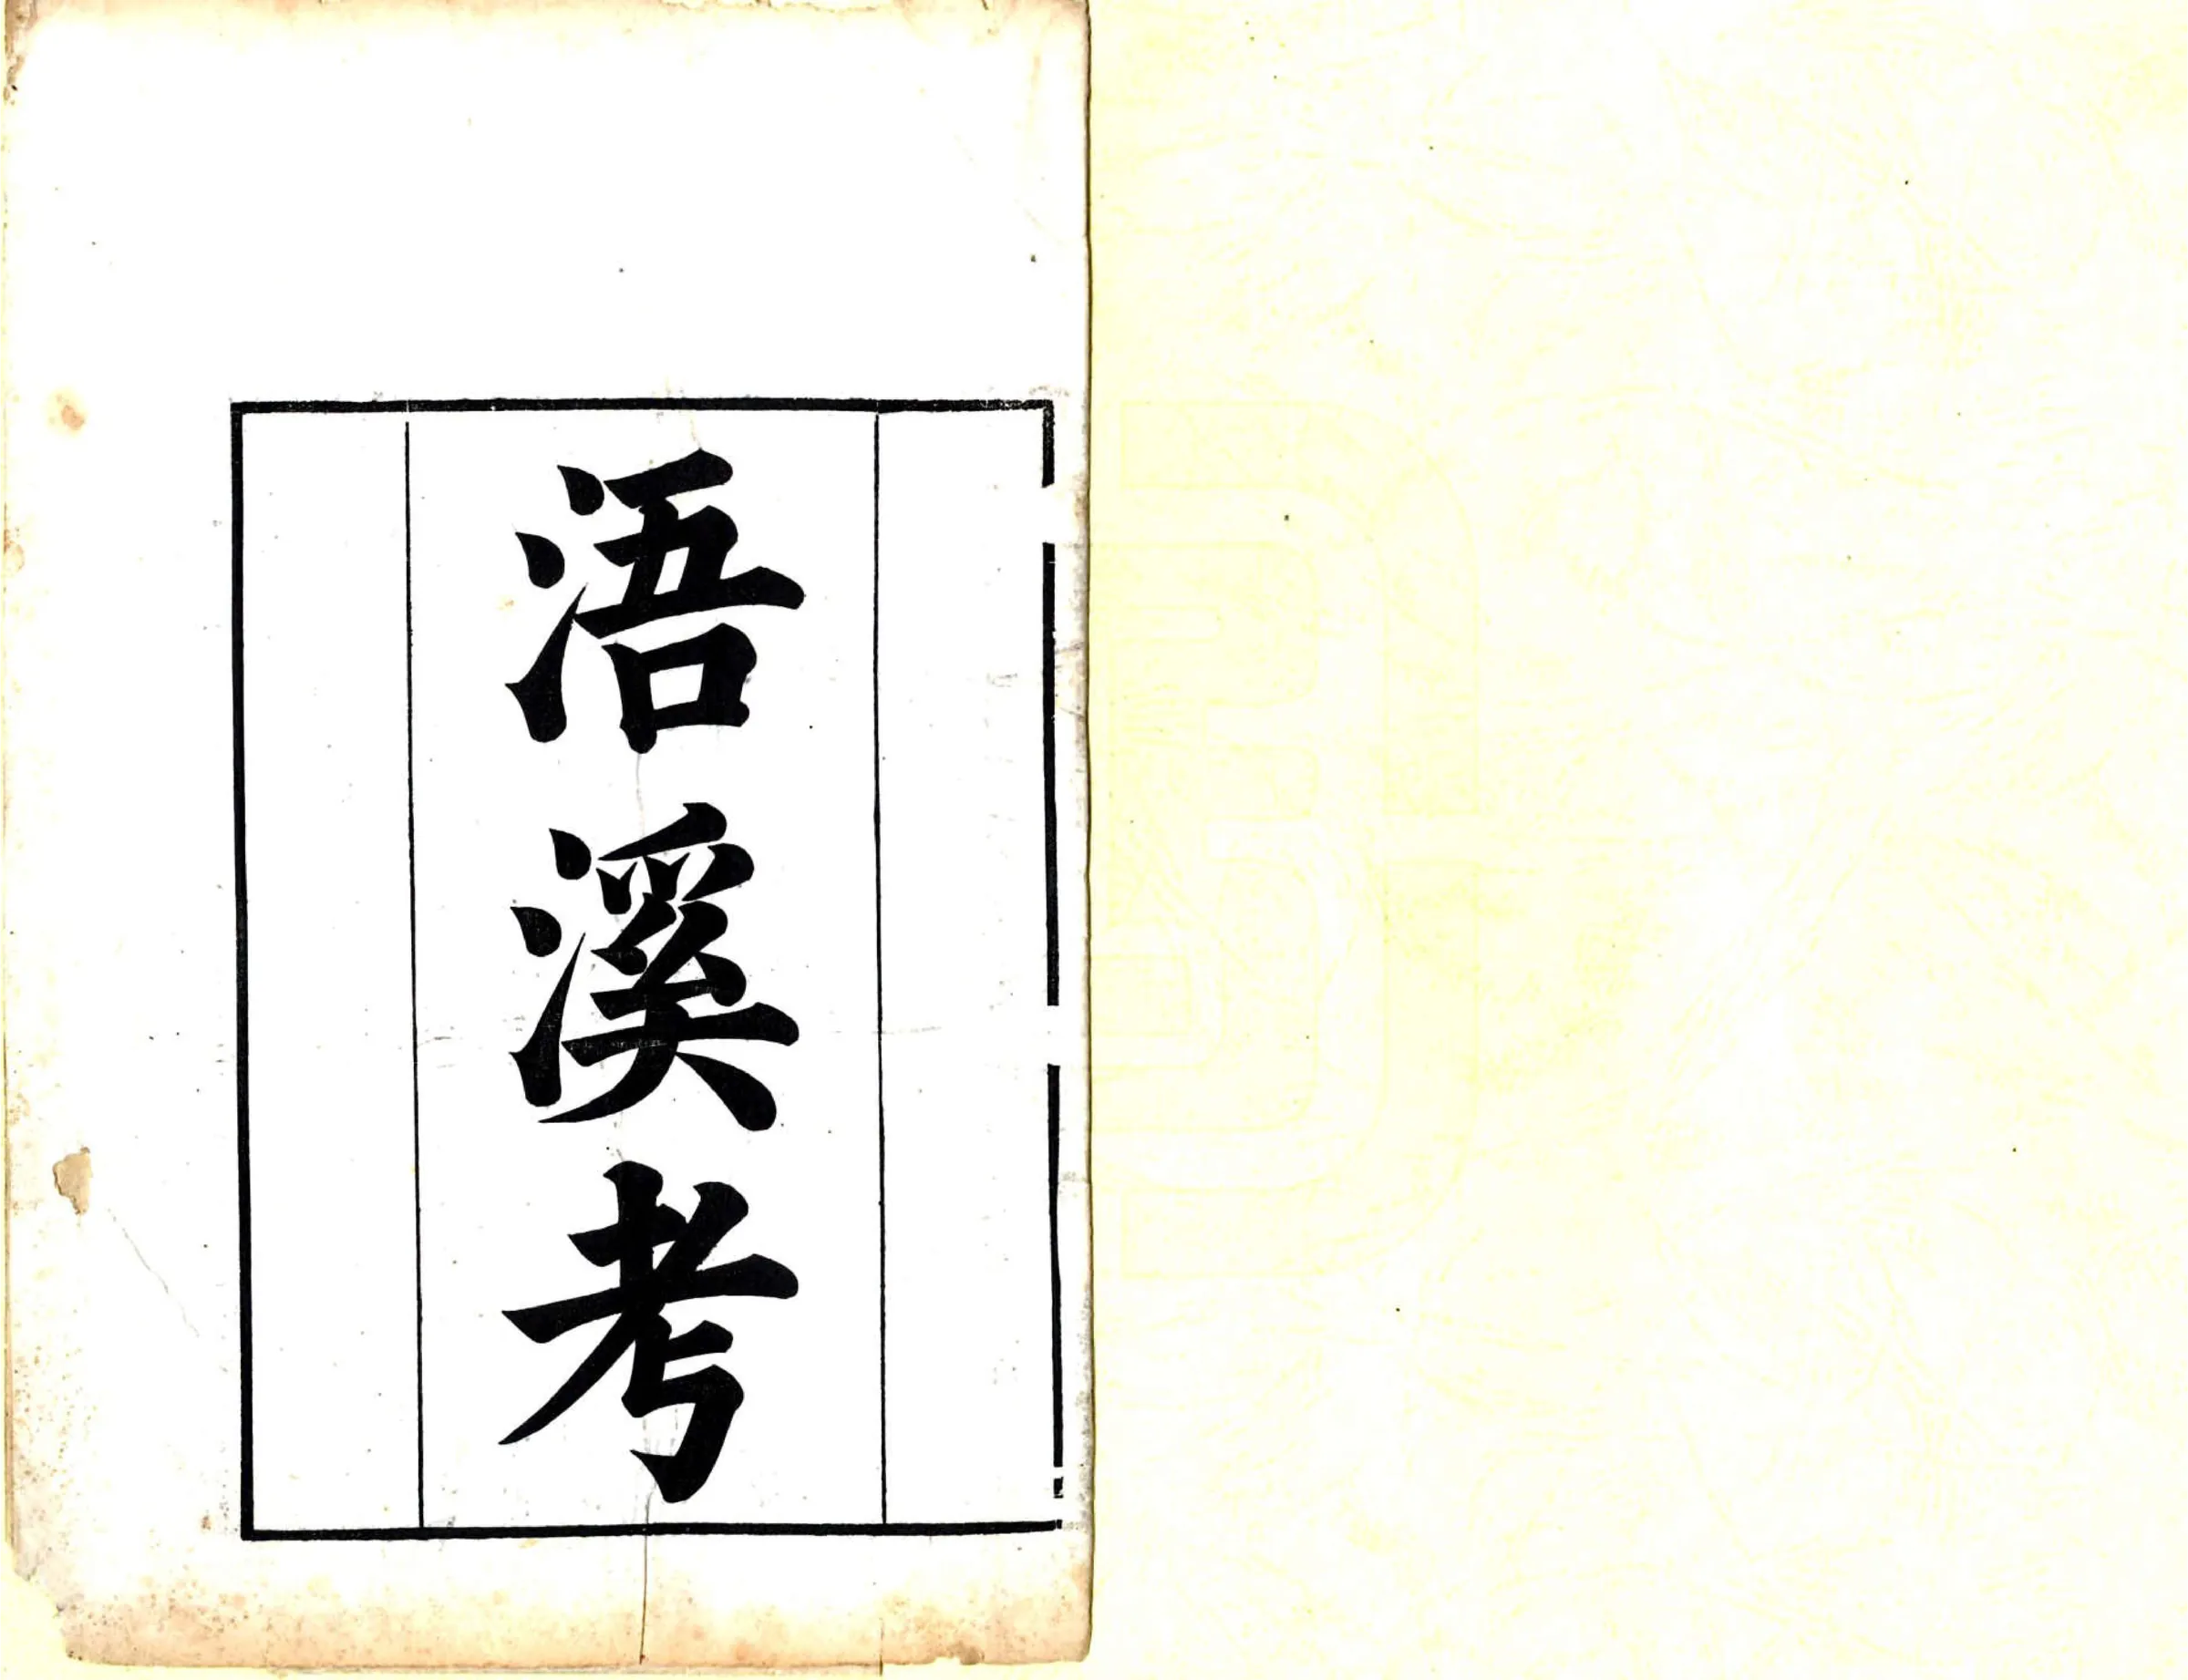 浯溪考